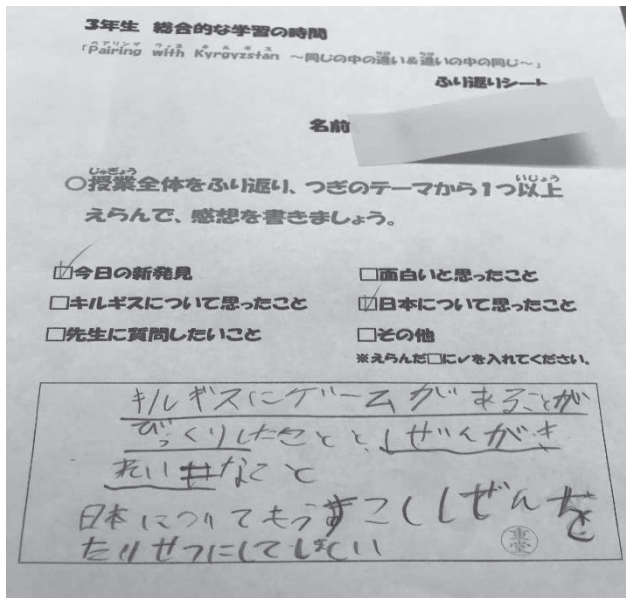 3年生 総合的な学習の時間
「Pairing with Kyrgyzstan ～同じの中の違い&違いの中の同じ～」
ふり返りシート
名前
○授業全体をふり返り、つぎのテーマから1つ以上
えらんで、感想を書きましょう。
☑今日の新発見 □面白いと思ったこと
□キルギスについて思ったこと ☑日本について思ったこと
□先生に質問したいこと □その他
※えらんだ□に✓を入れてください。
キルギスにゲームがあることが
びっくりしたことと、しぜんがき
れいなこと
日本についてもうすこししぜんを
たいせつにしてほしい